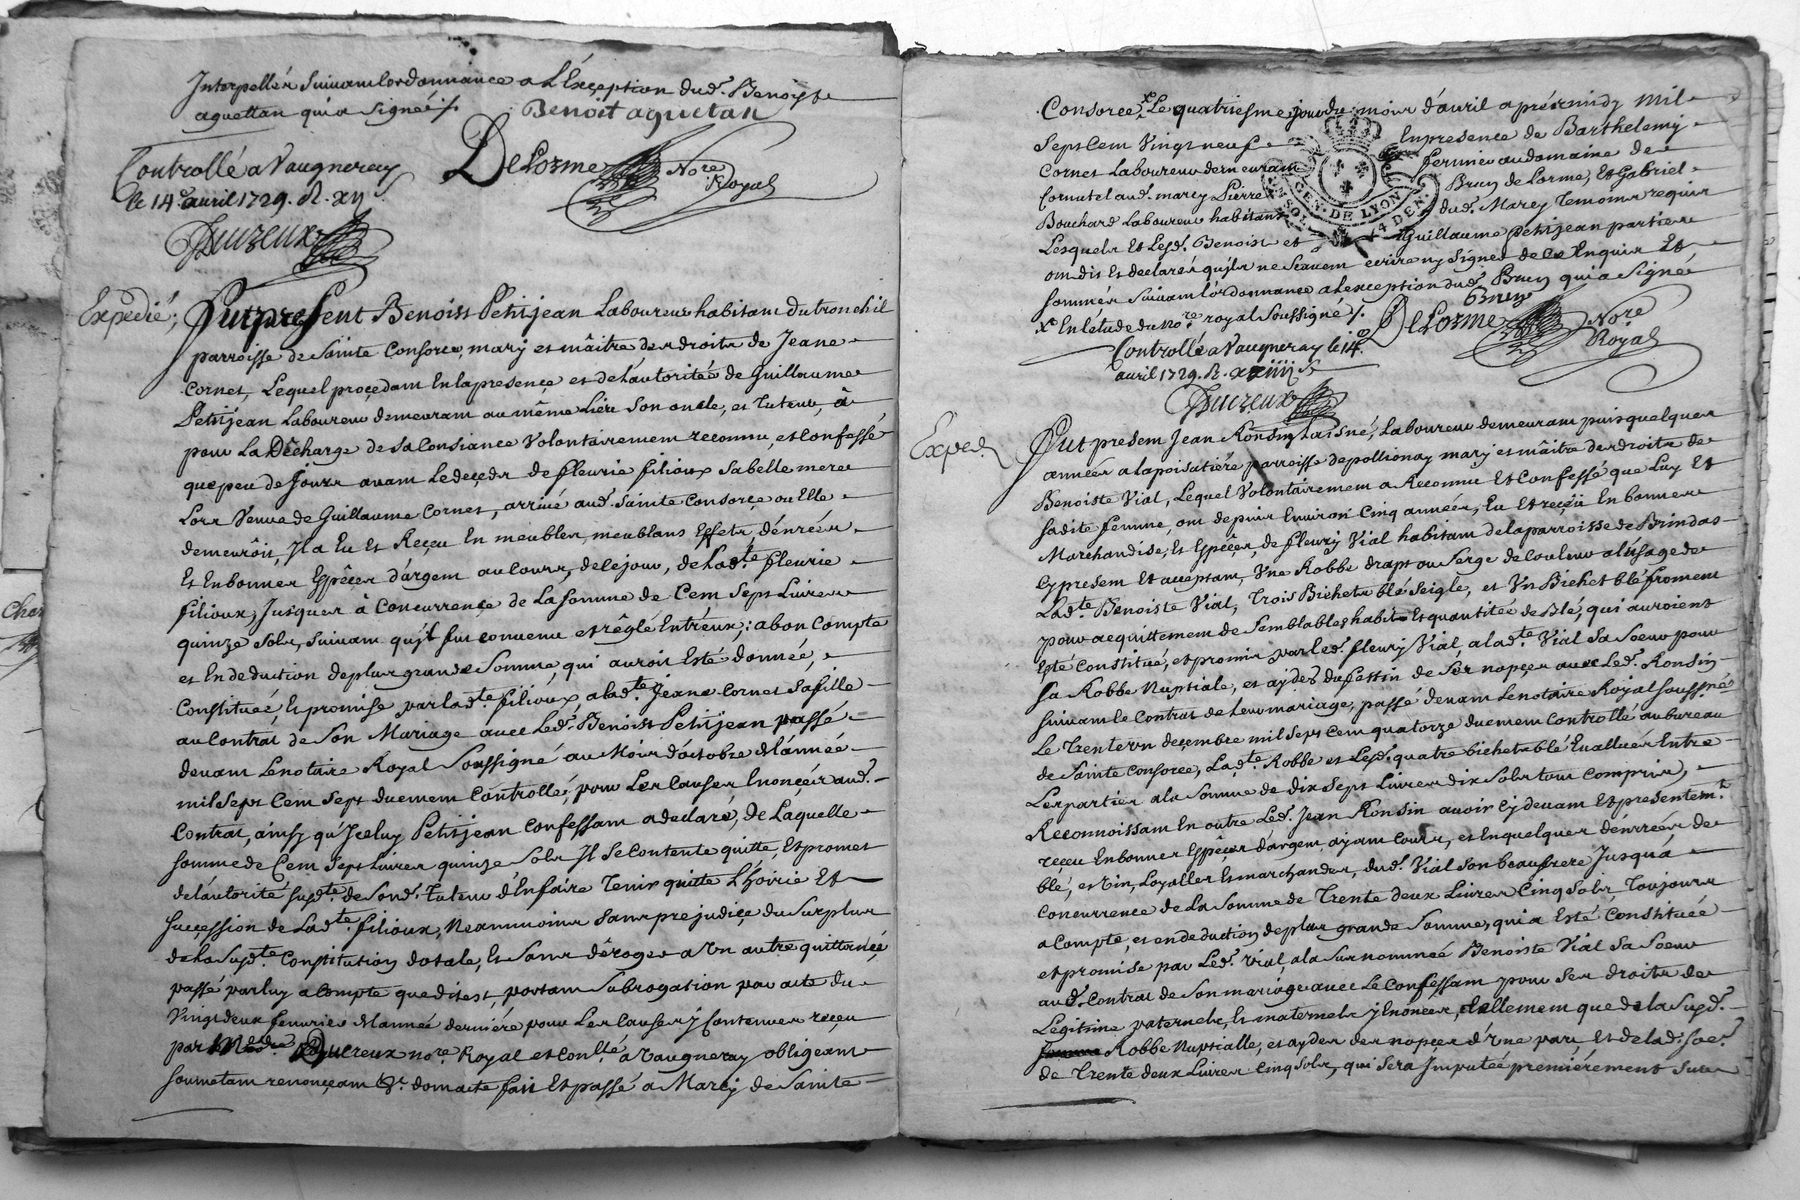 Interpellés suivant lordonnance a L'Exception dud. Benoist
aguettan qui a signé ./.
Benoit aguetan
Delorme Nore Royal
Controllé a Vaugneray
le 14e avril 1729. R. xy s
Ducreux
Expedié;
Fut present Benoist Petitjean Laboureur habitant du tronchil
parroisse de Sainte Consorce, mary et mâitre des droits de Jeane
Cornet, Lequel proçedant En la presençe et de L'autorité de Guillaume
Petitjean Laboureur demeurant au même Lieu Son oncle, et Tuteur, â
pour La Décharge de sa Consiance Volontairement reconnu, et Confessé
que peu de Jours avant Le deçeds de fleurie filioux sa belle mere
Lors Veuve de Guillaume Cornet, arrivé aud. Sainte Consorçe ou Elle
demeurôit, Jl a Eu et Reçeu En meubles, meublans Effets, dénrées
Et En bonnes Espêçes d'argent au Cours, de Ce jour, de Lad.te fleurie
filioux, Jusques à Concurrençe de La somme de Cent Sept Livres
quinze sols, suivant qu'jl fut convenu et rêglé Entr'eux; a bon Compte
et En deduction de plus grande Somme, qui auroit Esté donnée,
Constituée, Et promise par lad.te filioux, a lad.te Jeane Cornet sa fille
au Contrat de Son Mariage avec Led. Benoist Petitjean passé
devant Le notaire Royal Soussigné au Mois d'octobre de L'année
mil Sept Cent Sept duement Controllé, pour Les Causes Enonçées aud.
Contrat, ainsy qu'Jceluy Petitjean Confessant a declaré, de Laquelle
somme de Cent Sept Livres quinze Sols Jl Se Contente quitte, Et promet
de L'autorité susd.te de Sond. Tuteur d'En faire Tenir quitte L'hoirie Et
Succession de Lad.te filioux, Neanmoins Sans prejudiçe du Surplus
de La Susd.te Constitution dotale, Et Sans dêroger a Vn autre quittançe
passé par luy a Compte que dit est, portant Subrogation par acte du
Vingt deux feuvrier de L'année derniére pour Les Causes y Contenues reçeu
par Ducreux nore Royal et a Vaugneray obligeant
soumetant renonçant &c. dont acte fait Et passé a Marcy de Sainte
Consorce x Le quatriesme jour du mois d'avril aprés midy Mil
Sept Cent Vingt neuf En presence de Barthelemy
Cornet Laboureur demeurant fermier au domaine de
Cornutel aud. marcy Pierre Brun de Lorme, Et Gabriel
Bouchard Laboureur habitant dud. Marcy Temoins requis
Lesquels Et Lesd. Benoist et Guillaume petitjean parties
ont dit Et declaré qu'jls ne Scavent ecrire ny Signer de Ce Enquis Et
sommés suivant l'ordonnance a Lexception dud. Brun qui a Signé
x En L'étude du nore royal soussigné ./.
Brun
Delorme Nore Royal
GEN. DE LYON
Controllé a Vaugneray le 14e
avril 1729. R. xxiiij s
Ducreux
Exped.
Fut present Jean Ronsin Laisné, Laboureur demeurant puis quelques
années a la poisatiére parroisse de pollionay mary et mâitre des droits de
Benoiste Vial, Lequel Volontairement a Reconnu Et Confessé que Luy Et
sadite femme, ont depuis Environ Cinq années, Eu Et reçeu En bonnes
Marchandise, Et Espêçes, de fleury Vial habitant de la parroisse de Brindas
Cy present Et acceptant, Vne Robbe drapt ou Serge de Couleur a L'usage de
Lad.te Benoiste Vial, Trois Bichets blé Seigle, et Vn Bichet blé froment
pour acquittement de Semblables habit Et quantitée de blé, qui auroient
Esté Constitué, et promis par led. fleury Vial, a lad.te Vial Sa Soeur pour
sa Robbe Nuptiale, et aydes du festin de Ses nopçes avec Led. Ronsin
suivant Le Contrat de Leur mariage, passé devant Le notaire Royal soussné
Le Trente vn deçembre mil Sept Cent quatorze duement Controllé au bureau
de Sainte Consorce, Lad.te Robbe et Lesd. quatre bichets blé Evallués Entre
Les parties a la Somme de dix Sept Livres dix Sols tout Compris,
Reconnoissant En outre Led. Jean Ronsin avoir Cy devant Et presentemt
reçeu En bonnes Espéçes d'argent ayant Cours, et En quelques dénrrées de
blé, et vin, Loyalles Et marchandes, dud. Vial Son beaufrere Jusqu'à
Concurrence de La Somme de Trente deux Livres Cinq Sols, Toujours
a Compte, et En deduction de plus grande Somme, qui a Esté Constituée
et promise par Led. vial, a la surnommée Benoiste Vial Sa Soeur
aud. Contrat de Son mariage avec Le Confessant pour Ses droits de
Legitime paternels, Et maternels y Enonçes, tellement que de la Susd.
Robbe Nuptialle, et aydes des nopçes d'Vne part, Et de lad. soe.
de Trente deux Livres Cinq Sols, qui Sera Jmputée premiérement Sur